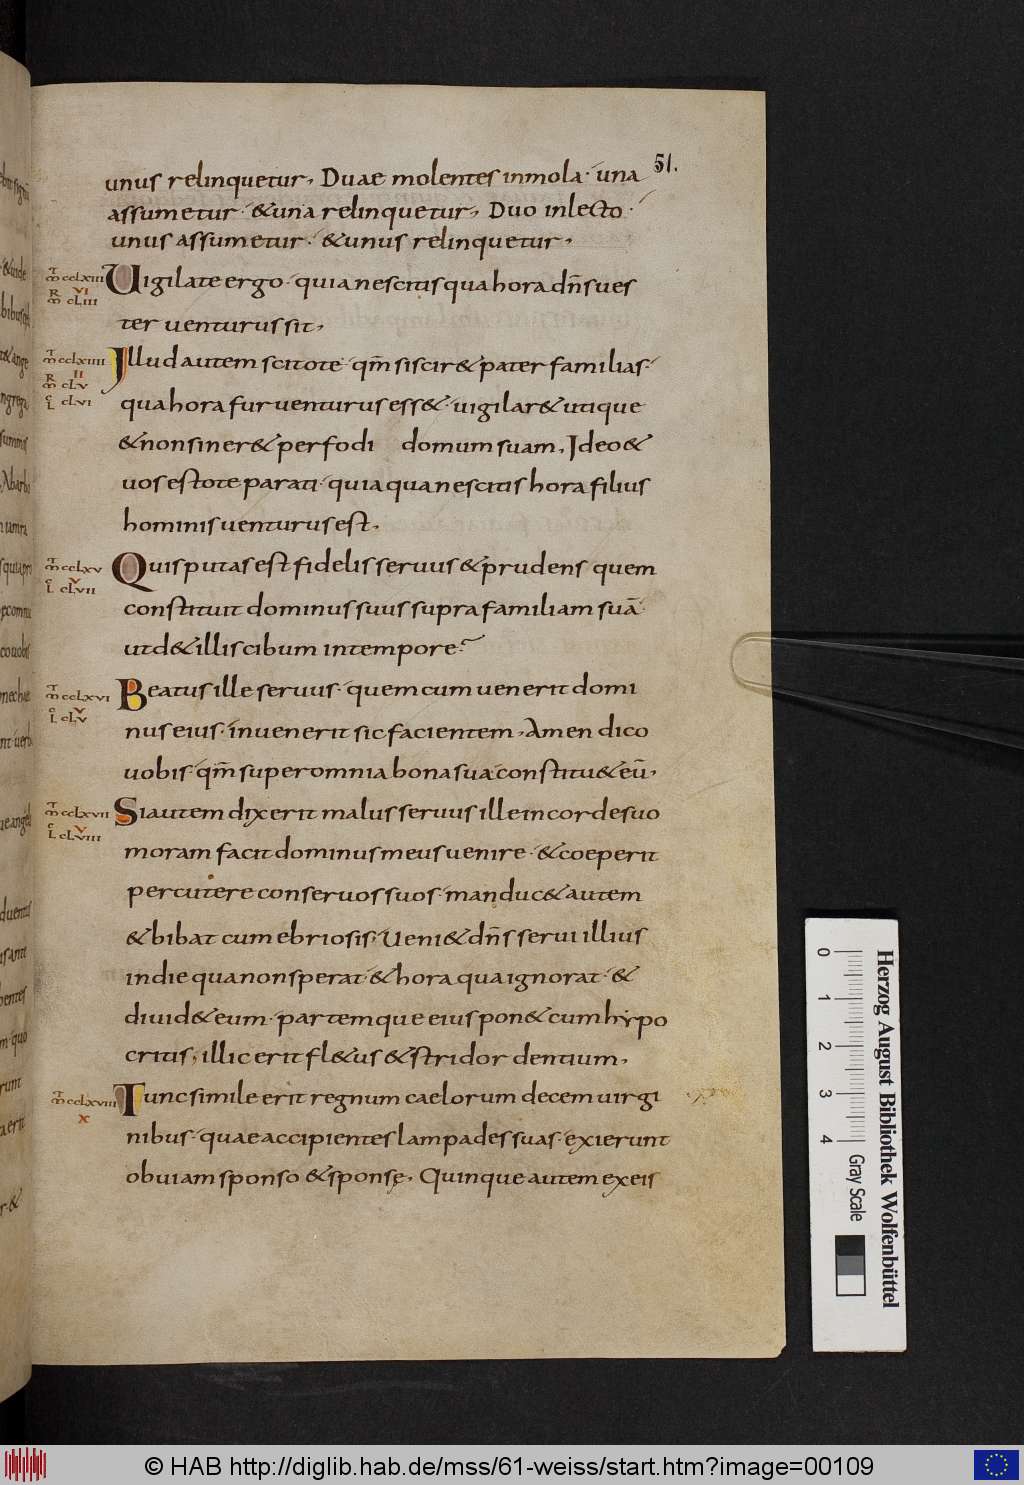 51.
unus relinquetur, Duae molentes inmola· una
assumetur· &una relinquetur, Duo inlecto·
unus assumetur· &unus relinquetur,
Uigilate ergo· quia nescitis qua hora dn̄s ues
ter uenturus sit,
Illud autem scitote· qm̄ si scir& pater familias·
qua hora fur uenturus ess&· uigilar& utique
& non siner& perfodi domum suam, Ideo&
uos estote parati· quia qua nescitis hora filius
hominis uenturus est,
Quis putas est fidelis seruus & prudens quem
constituit dominus suus supra familiam suā·
ut d& illis cibum in tempore?
Beatus ille seruus· quem cum uenerit domi
nus eius· inuenerit sic facientem, Amen dico
uobis· qm̄ super omnia bona sua constitu& eū,
Si autem dixerit malus seruus ille in corde suo
moram facit dominus meus uenire· & coeperit
percutere conseruos suos· manduc& autem
& bibat cum ebriosis· Ueni& dn̄s serui illius
in die qua non sperat· & hora qua ignorat· &
diuid& eum· partemque eius pon& cum hypo
critis, illic erit fl&us & stridor dentium,
Tunc simile erit regnum caelorum decem uirgi
nibus· quae accipientes lampades suas· exierunt
obuiam sponso & sponsę, Quinque autem ex eis
ccLxiii
VI
cLiii
ccLxiiii
II
cLv
cLvi
ccLxv
V
cLvii
ccLxvi
V
cLv
ccLxvii
V
cLviii
ccLxviii
X
0 1 2 3 4
Herzog August Bibliothek Wolfenbüttel
Gray Scale
© HAB http://diglib.hab.de/mss/61-weiss/start.htm?image=00109